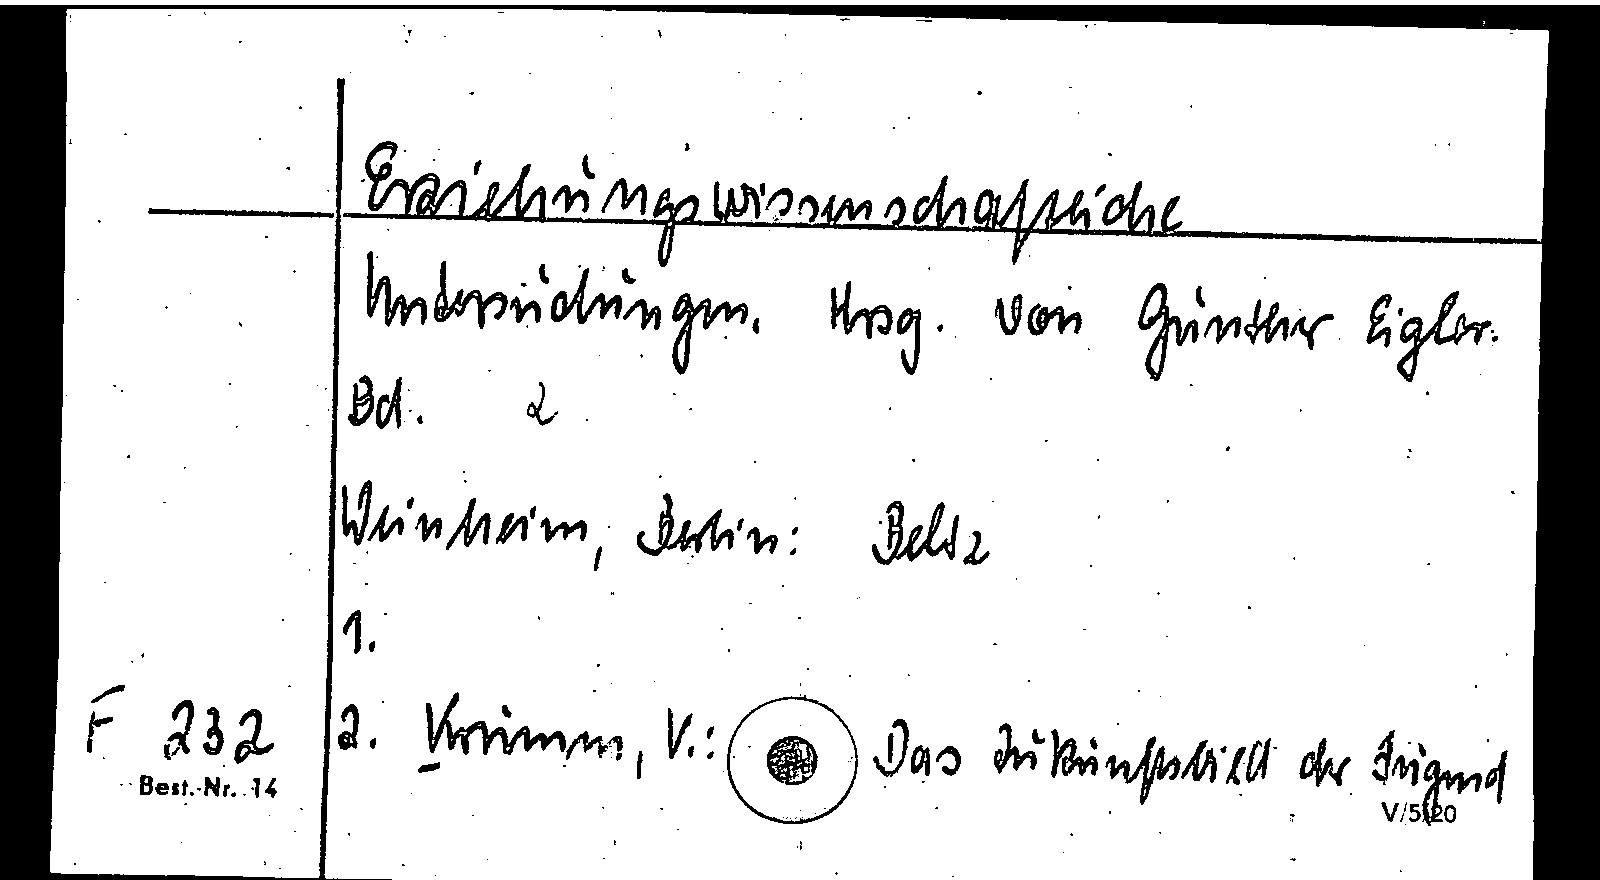 Erziehungswissenschaftliche
Untersuchungen. Hrsg. von Günther Eigler.
Bd. 2
Weinheim, Berlin: Beltz
1.
F 232 2. V.: Das Zukunftsbild der Jugend
Best.-Nr. 14
V/5/20